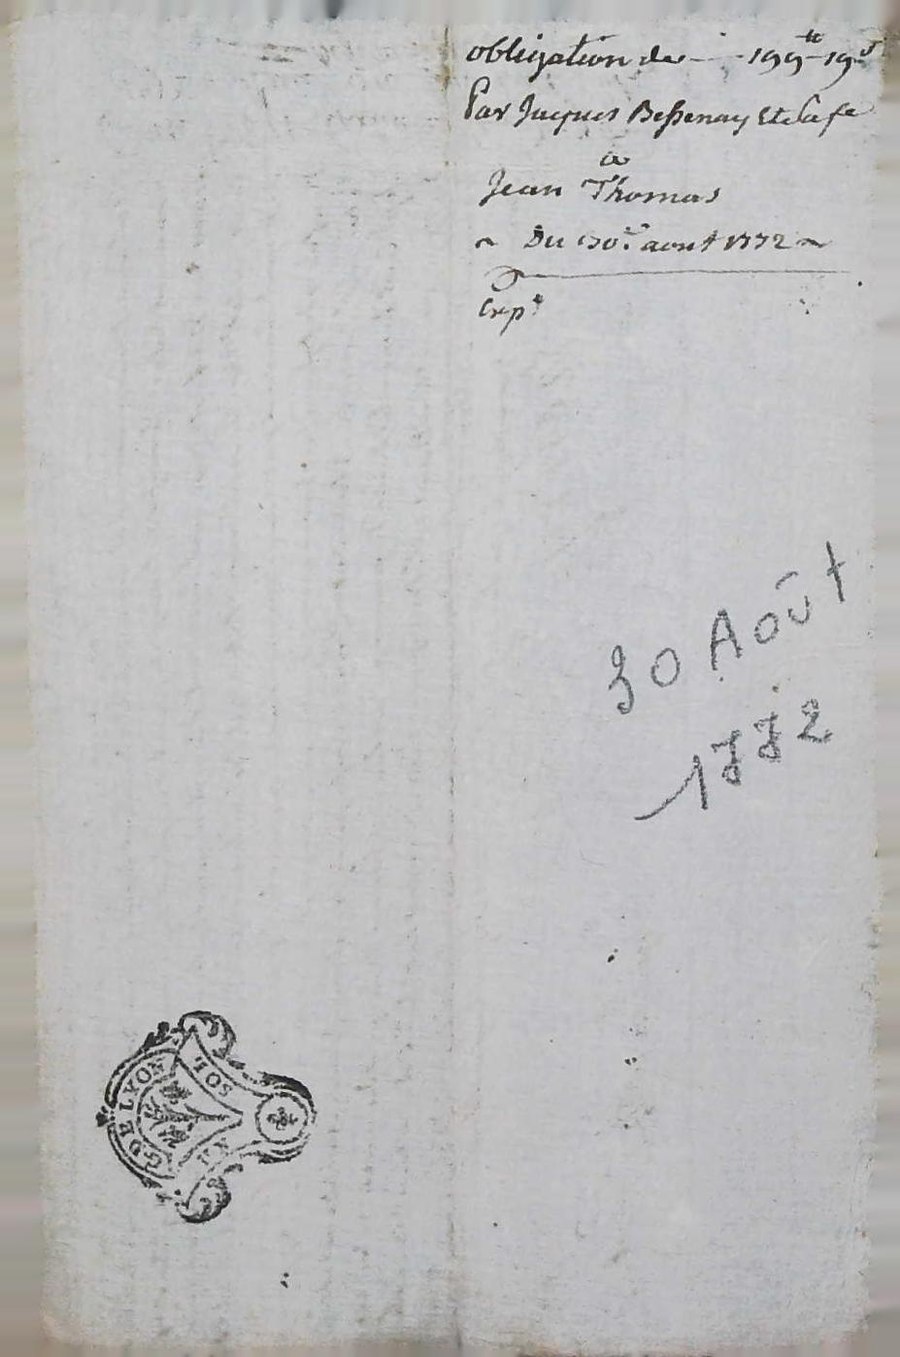 obligation de 199ᵗᵗ 19ˢ
Par Jacques Bessenay Et Sa fe
a
Jean Thomas
Du 30.ᵉ aout 1772
Expᵉ
30 Août
1772
G DE LYON
SOL